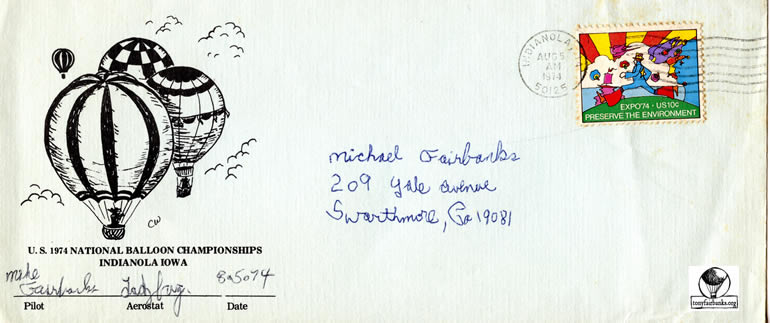 INDIANOLA, IA
AUG 5
AM
1974
50125
EXPO'74 · US10¢
PRESERVE THE ENVIRONMENT
Michael Fairbanks
209 Yale Avenue
Swarthmore, Pa 19081
CW
U. S. 1974 NATIONAL BALLOON CHAMPIONSHIPS
INDIANOLA IOWA
Mike
Fairbanks Ladybug. 8a5074
Pilot Aerostat Date
tonyfairbanks.org